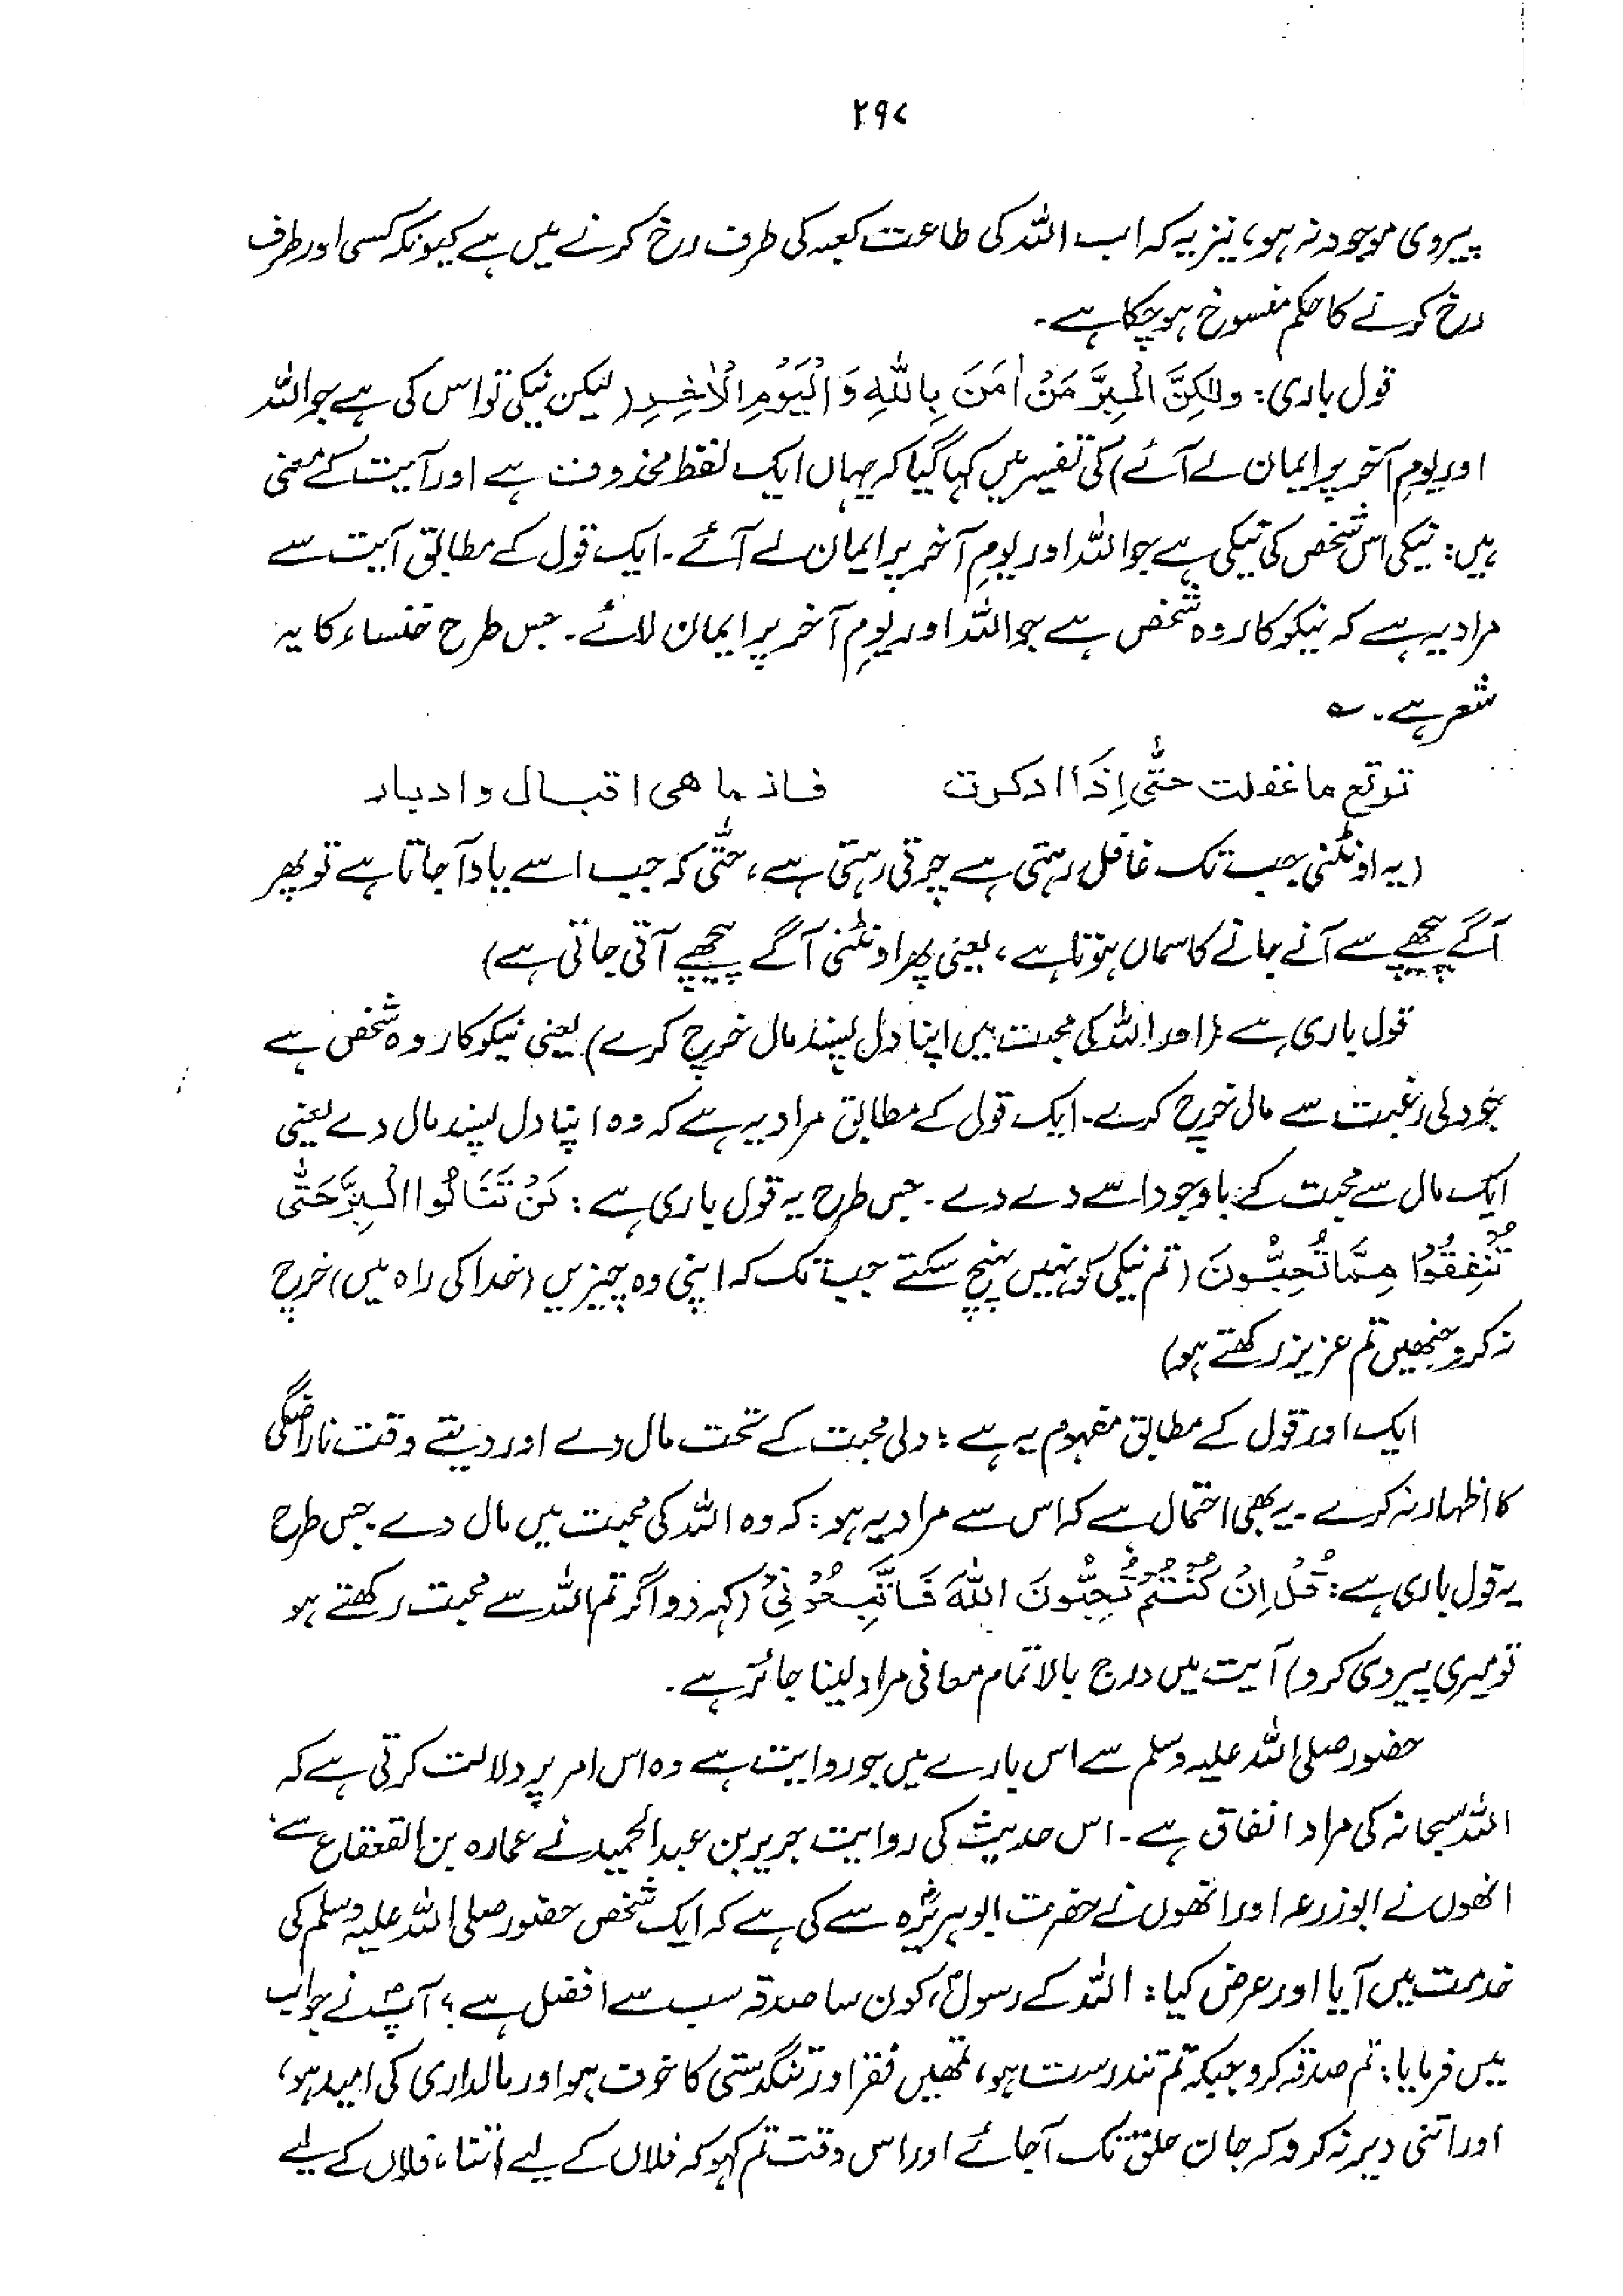 ۲۹۷
پیروی موجود نہ ہو، نیز یہ کہ اب اللہ کی طاعت کعبہ کی طرف رخ کرنے میں ہے کیونکہ کسی اور طرف
رخ کرنے کا حکم منسوخ ہو چکا ہے۔
قول باری: وَلٰكِنَّ الْبِرَّ مَنْ اٰمَنَ بِاللّٰهِ وَ الْيَوْمِ الْاٰخِرِ (لیکن نیکی تو اس کی ہے جو اللہ
اور یومِ آخر پر ایمان لے آئے) کی تفسیر میں کہا گیا کہ یہاں ایک لفظ محذوف ہے اور آیت کے معنی
ہیں: نیکی اس شخص کی نیکی ہے جو اللہ اور یومِ آخر پر ایمان لے آئے۔ ایک قول کے مطابق آیت سے
مراد یہ ہے کہ نیکوکار وہ شخص ہے جو اللہ اور یومِ آخر پر ایمان لائے۔ جس طرح خنساء کا یہ
شعر ہے۔ ؎
توتع ما غفلت حتّٰی اِذَا ادکرت فاذ ما هی اقبال و ادبار
(یہ اونٹنی جب تک غافل رہتی ہے چرتی رہتی ہے، حتّٰی کہ جب اسے یاد آ جاتا ہے تو پھر
آگے پیچھے سے آنے جانے کا سماں ہوتا ہے، یعنی پھر اونٹنی آگے پیچھے آتی جاتی ہے)
قول باری ہے (اور اللہ کی محبت میں اپنا دل پسند مال خرچ کرے) یعنی نیکوکار وہ شخص ہے
جو دلی رغبت سے مال خرچ کرے۔ ایک قول کے مطابق مراد یہ ہے کہ وہ اپنا دل پسند مال دے یعنی
ایک مال سے محبت کے باوجود اسے دے دے۔ جس طرح یہ قول باری ہے: لَنْ تَنَالُوا الْبِرَّ حَتّٰى
تُنْفِقُوْا مِمَّا تُحِبُّوْنَ (تم نیکی کو نہیں پہنچ سکتے جب تک کہ اپنی وہ چیزیں (خدا کی راہ میں) خرچ
نہ کرو جنھیں تم عزیز رکھتے ہو)
ایک اور قول کے مطابق مفہوم یہ ہے: دلی محبت کے تحت مال دے اور دیتے وقت ناراضگی
کا اظہار نہ کرے۔ یہ بھی احتمال ہے کہ اس سے مراد یہ ہو: کہ وہ اللہ کی محبت میں مال دے۔ جس طرح
یہ قول باری ہے: قُلْ اِنْ كُنْتُمْ تُحِبُّوْنَ اللّٰهَ فَاتَّبِعُوْنِيْ (کہہ دو اگر تم اللہ سے محبت رکھتے ہو
تو میری پیروی کرو) آیت میں درج بالا تمام معانی مراد لینا جائز ہے۔
حضور صلی اللہ علیہ وسلم سے اس بارے میں جو روایت ہے وہ اس امر پر دلالت کرتی ہے کہ
اللہ سبحانہ کی مراد انفاق ہے۔ اس حدیث کی روایت جریر بن عبدالحمید نے عمارہ بن القعقاع سے،
انھوں نے ابو زرعہ اور انھوں نے حضرت ابو ہریرہؓ سے کی ہے کہ ایک شخص حضور صلی اللہ علیہ وسلم کی
خدمت میں آیا اور عرض کیا: اللہ کے رسولؐ، کون سا صدقہ سب سے افضل ہے؟ آپؐ نے جواب
میں فرمایا: تم صدقہ کرو جبکہ تم تندرست ہو، تمھیں فقر اور تنگدستی کا خوف ہو اور مالداری کی امید ہو،
اور اتنی دیر نہ کرو کہ جان حلق تک آجائے اور اس وقت تم کہو کہ فلاں کے لیے اتنا، فلاں کے لیے